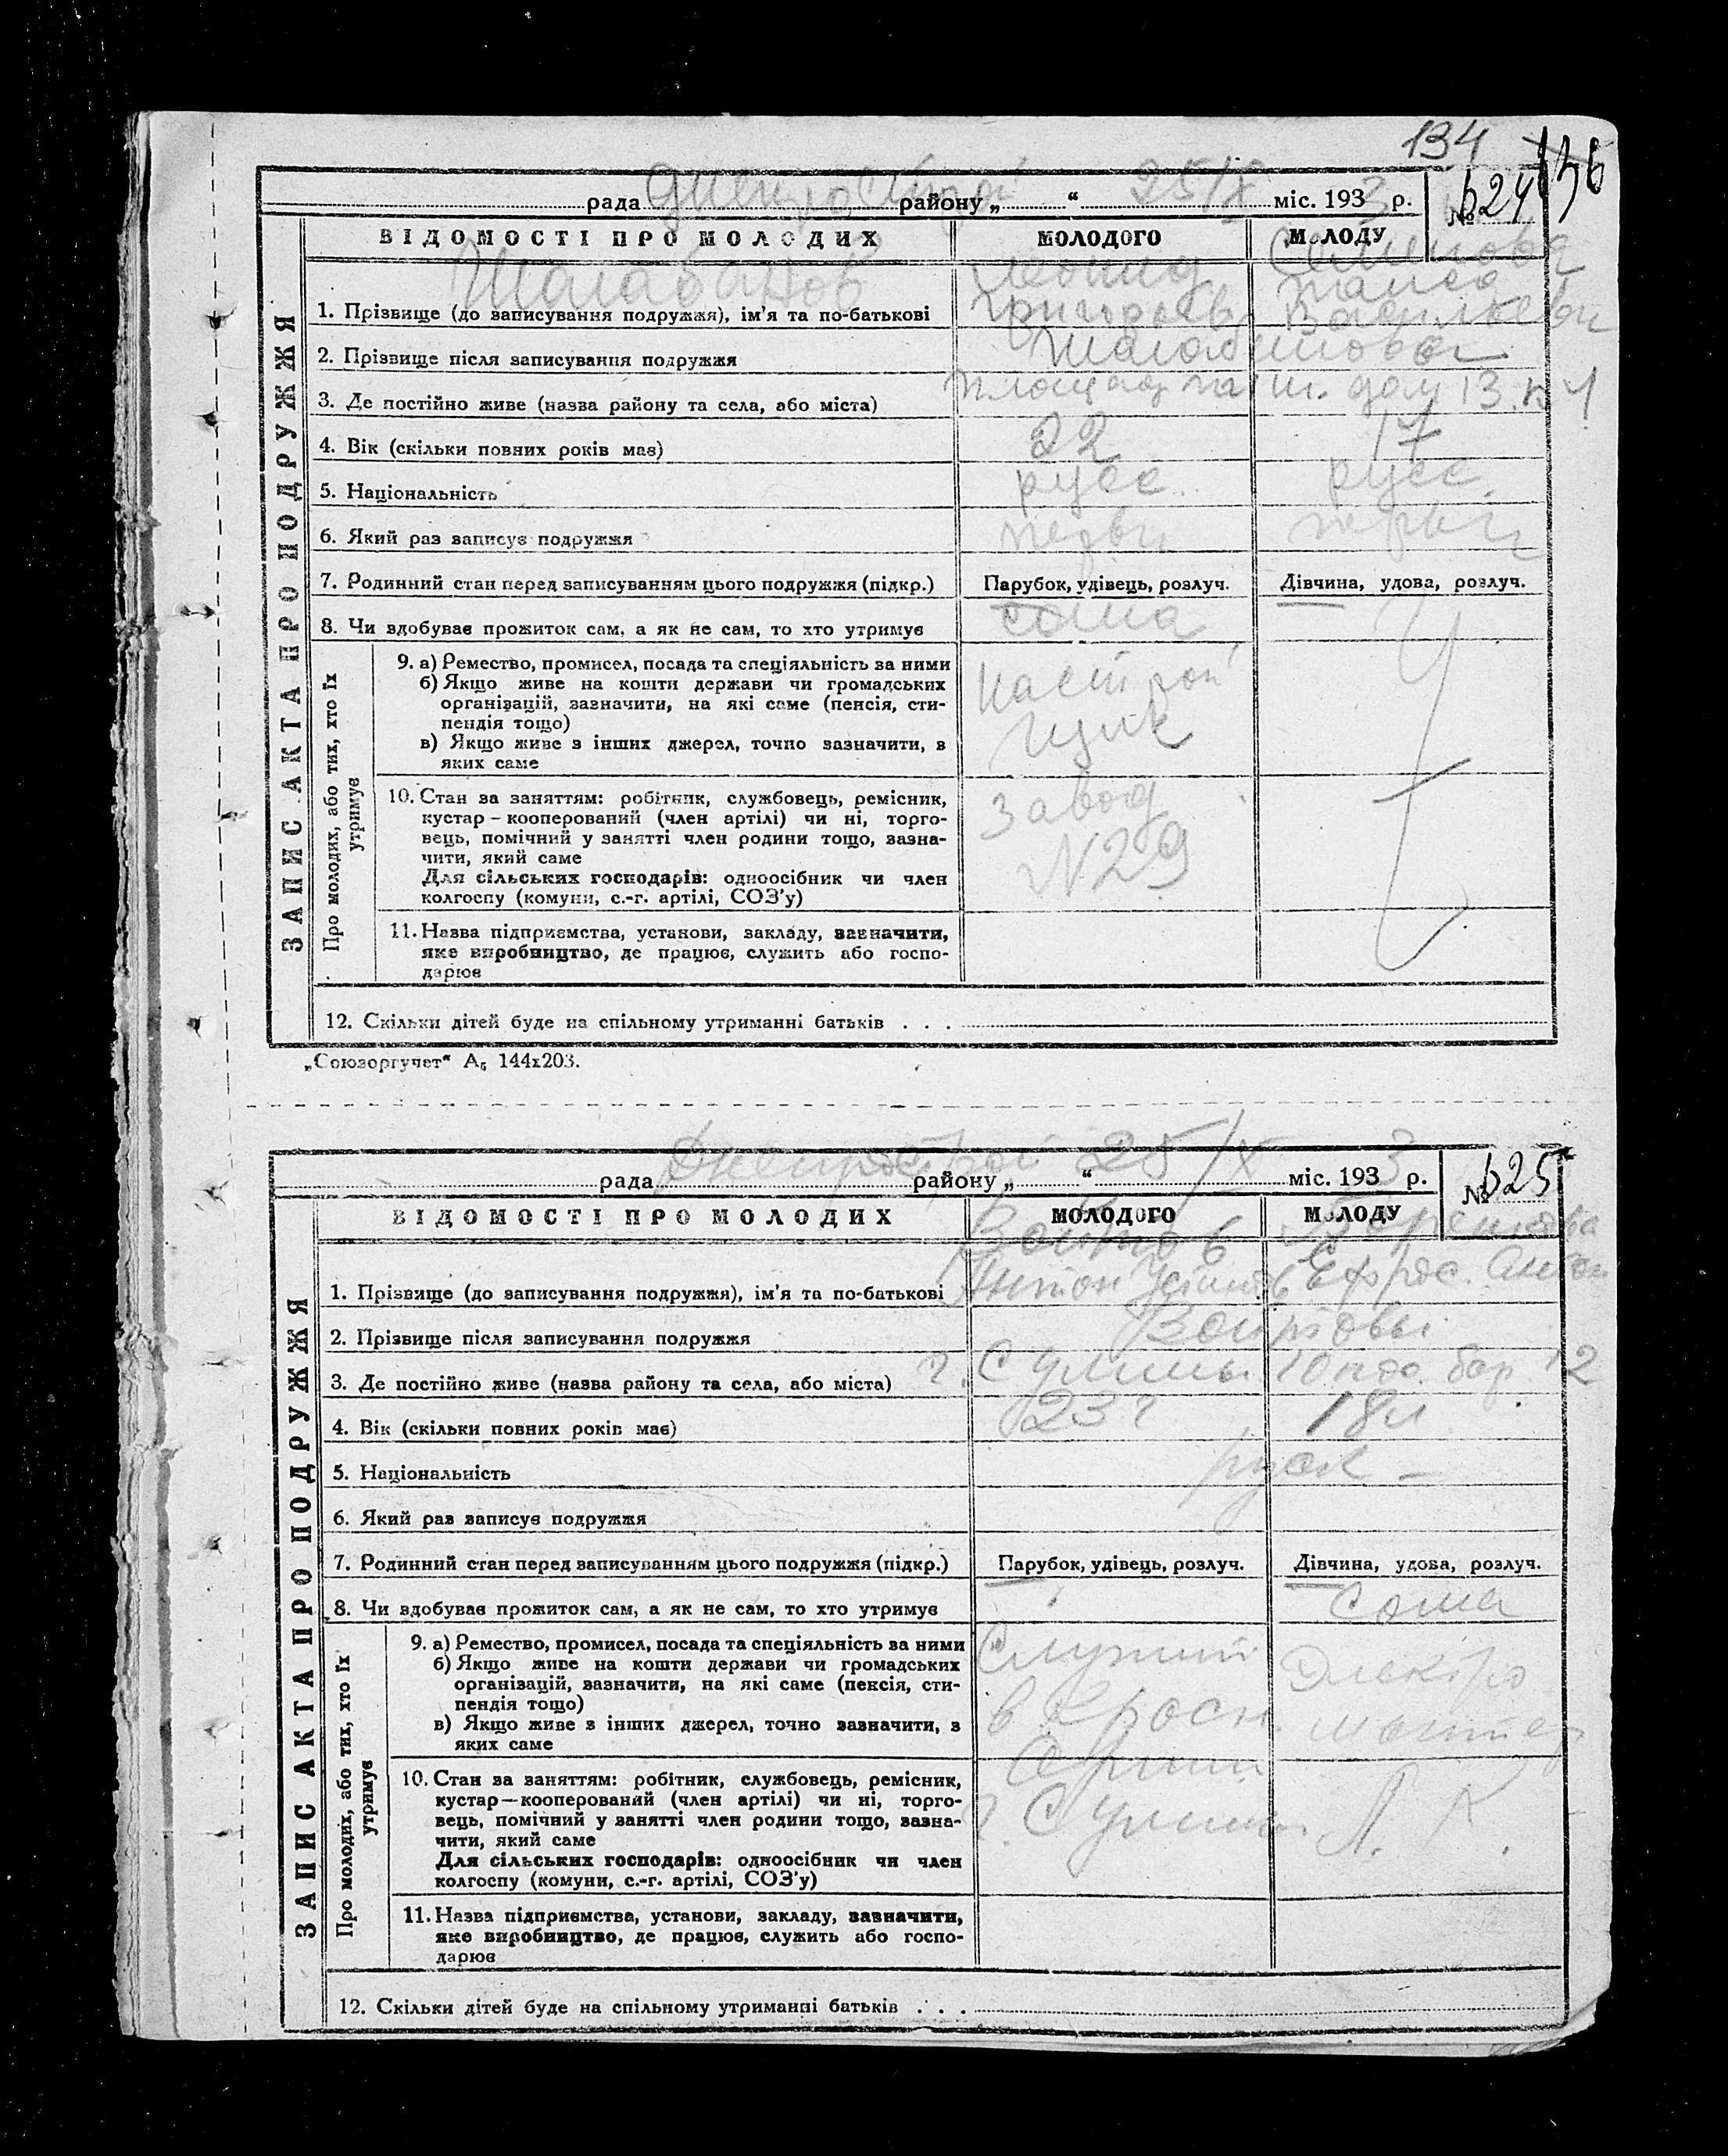 134
рада Днепрострой району „ “ 25/IX міс. 1933 р. № 624
ВІДОМОСТІ ПРО МОЛОДИХ МОЛОДОГО МОЛОДУ
ЗАПИС АКТА ПРО ПОДРУЖЖЯ
Шалабанов Леонид Семенова
1. Прізвище (до записування подружжя), ім'я та по-батькові Григорьев Васильевн
2. Прізвище після записування подружжя
3. Де постійно живе (назва району та села, або міста) дом 13. к 4
4. Вік (скільки повних років має) 22 17
5. Національність русс русс.
6. Який раз записує подружжя первы первы
7. Родинний стан перед записуванням цього подружжя (підкр.) Парубок, удівець, розлуч. Дівчина, удова, розлуч.
8. Чи здобуває прожиток сам, а як не сам, то хто утримує сама
Про молодих, або тих, хто їх утримує
9. а) Ремество, промисел, посада та спеціяльність за ними
б) Якщо живе на кошти держави чи громадських
організацій, зазначити, на які саме (пенсія, сти-
пендія тощо)
в) Якщо живе з інших джерел, точно зазначити, з
яких саме
настрой
щик
10. Стан за заняттям: робітник, службовець, ремісник,
кустар – кооперований (член артілі) чи ні, торго-
вець, помічний у занятті член родини тощо, зазна-
чити, який саме
Для сільських господарів: одноосібник чи член
колгоспу (комуни, с.-г. артілі, СОЗ'у)
Завод
N29
11. Назва підприємства, установи, закладу, зазначити,
яке виробництво, де працює, служить або госпо-
дарює
12. Скільки дітей буде на спільному утриманні батьків . . .
„Союзоргучет“ А₅ 144х203.
рада Днепрострой району „ “ 25/IX міс. 1933 р. № 625
ВІДОМОСТІ ПРО МОЛОДИХ МОЛОДОГО МОЛОДУ
ЗАПИС АКТА ПРО ПОДРУЖЖЯ
Войтов
1. Прізвище (до записування подружжя), ім'я та по-батькові Антон Ефрос. Антон
2. Прізвище після записування подружжя Войтовы
3. Де постійно живе (назва району та села, або міста) г. Сумы бар. 12
4. Вік (скільки повних років має) 23 г 18 л
5. Національність русск –
6. Який раз записує подружжя
7. Родинний стан перед записуванням цього подружжя (підкр.) Парубок, удівець, розлуч. Дівчина, удова, розлуч.
8. Чи здобуває прожиток сам, а як не сам, то хто утримує сама
Про молодих, або тих, хто їх утримує
9. а) Ремество, промисел, посада та спеціяльність за ними
б) Якщо живе на кошти держави чи громадських
організацій, зазначити, на які саме (пенсія, сти-
пендія тощо)
в) Якщо живе з інших джерел, точно зазначити, з
яких саме
Служит
в Красн.
Армии
Электро
монтер
10. Стан за заняттям: робітник, службовець, ремісник,
кустар — кооперований (член артілі) чи ні, торго-
вець, помічний у занятті член родини тощо, зазна-
чити, який саме
Для сільських господарів: одноосібник чи член
колгоспу (комуни, с.-г. артілі, СОЗ'у)
г. Сумы
11. Назва підприємства, установи, закладу, зазначити,
яке виробництво, де працює, служить або госпо-
дарює
12. Скільки дітей буде на спільному утриманні батьків . . .